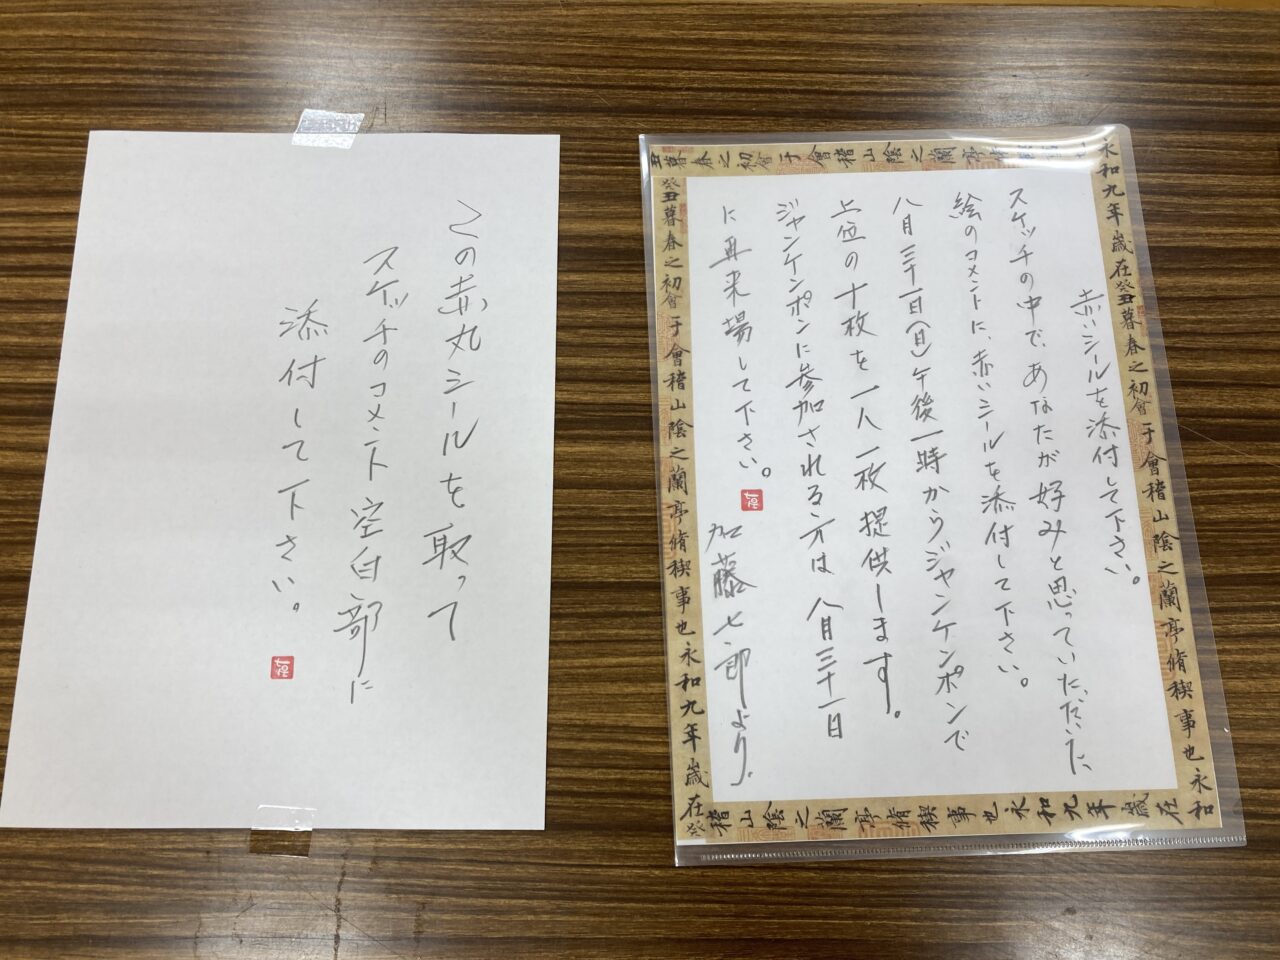 赤いシールを添付して下さい。
スケッチの中で、あなたが好みと思っていただいた、
絵のコメントに、赤いシールを添付して下さい。
八月三十一日(日)午後一時から、ジャンケンポンで
上位の十枚を一人一枚提供します。
ジャンケンポンに参加される方は八月三十一日
に再来場して下さい。
加藤七郎より.
この赤丸シールを取って
スケッチのコメント空白部に
添付して下さい。
永和九年歳在癸丑暮春之初會于會稽山陰之蘭亭脩禊事也永和
丑暮春之初會于會稽山陰之蘭亭脩
癸丑暮春之初會于會稽山陰之蘭亭脩禊事也永和九年歳在癸
稽山陰之蘭亭脩禊事也永和九年歳在